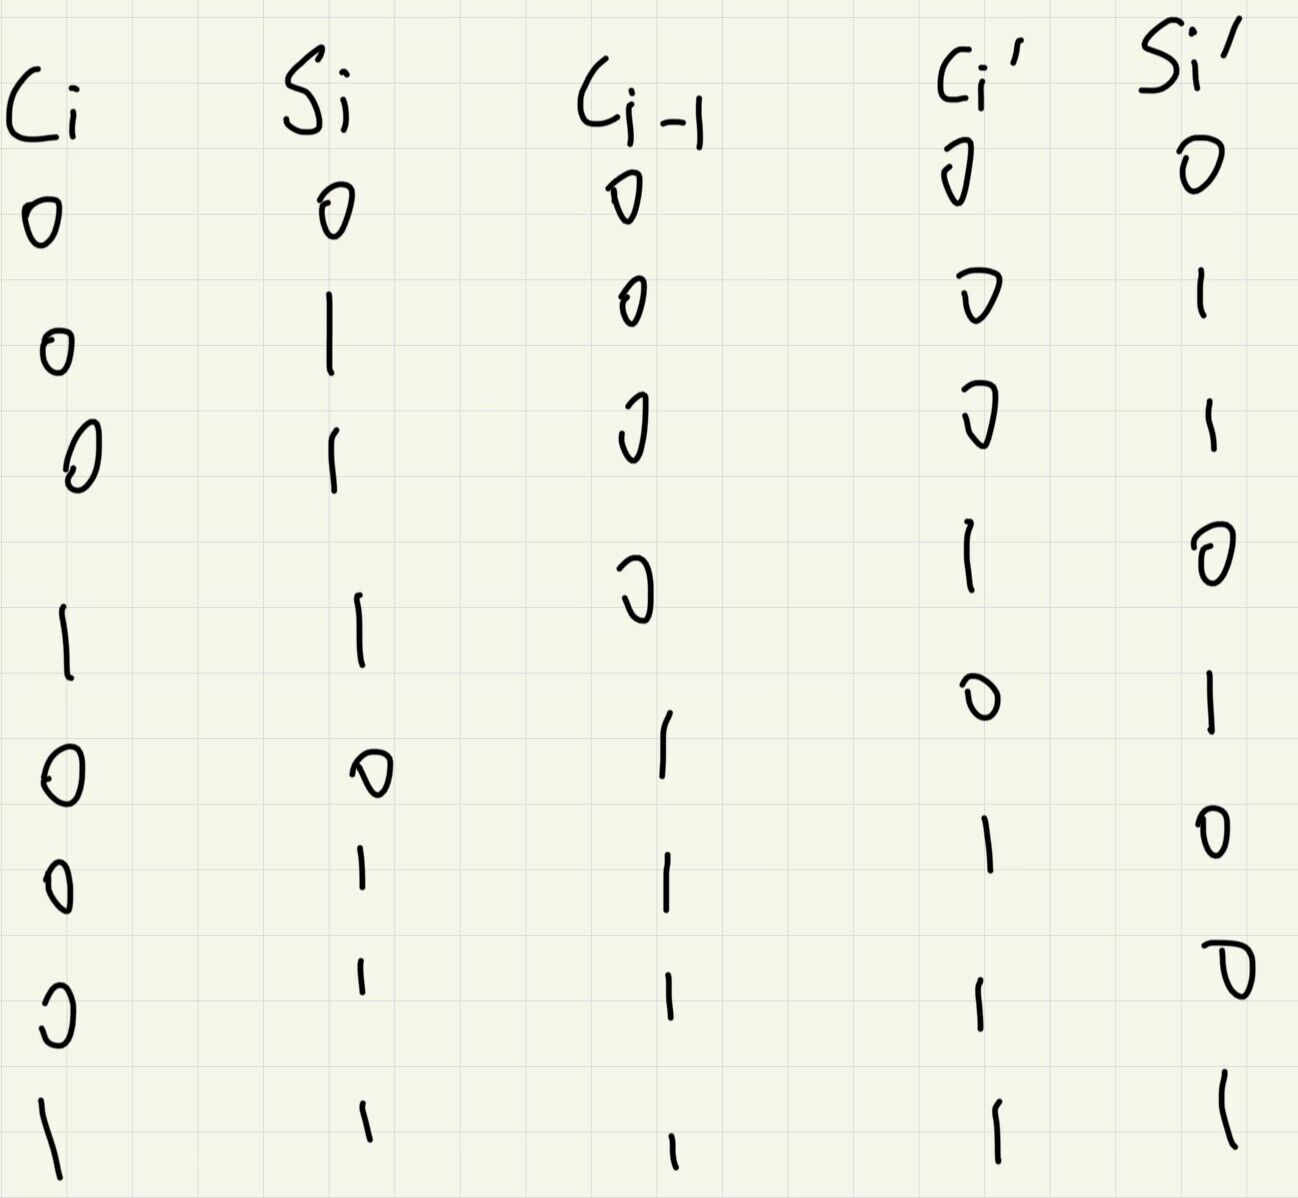 Ci Si Ci-1 Ci' Si'
0 0 0 0 0
0 1 0 0 1
0 1 0 0 1
1 1 0 1 0
0 0 1 0 1
0 1 1 1 0
0 1 1 1 0
1 1 1 1 1